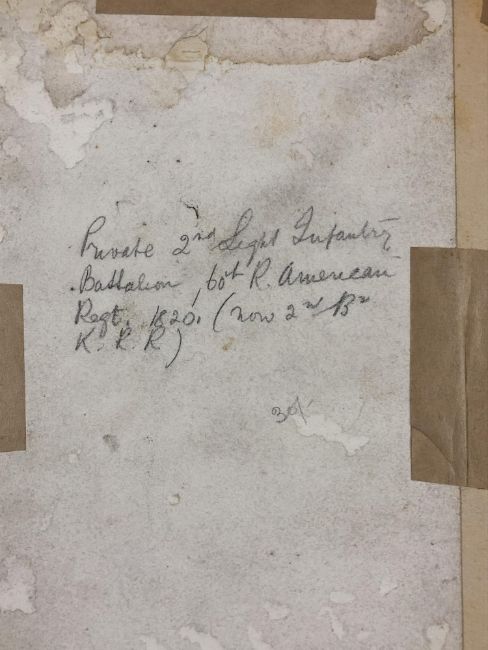 Private 2nd Light Infantry
Battalion, 60th R. American
Regt. 1820. (now 2nd Bn
K. R. R)
30/